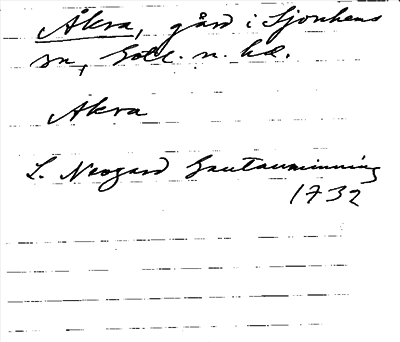 Åkra, gård i Sjonhens
sn, Gotl. n. hd.
Akra
L. Neogard Gautauminning
1732